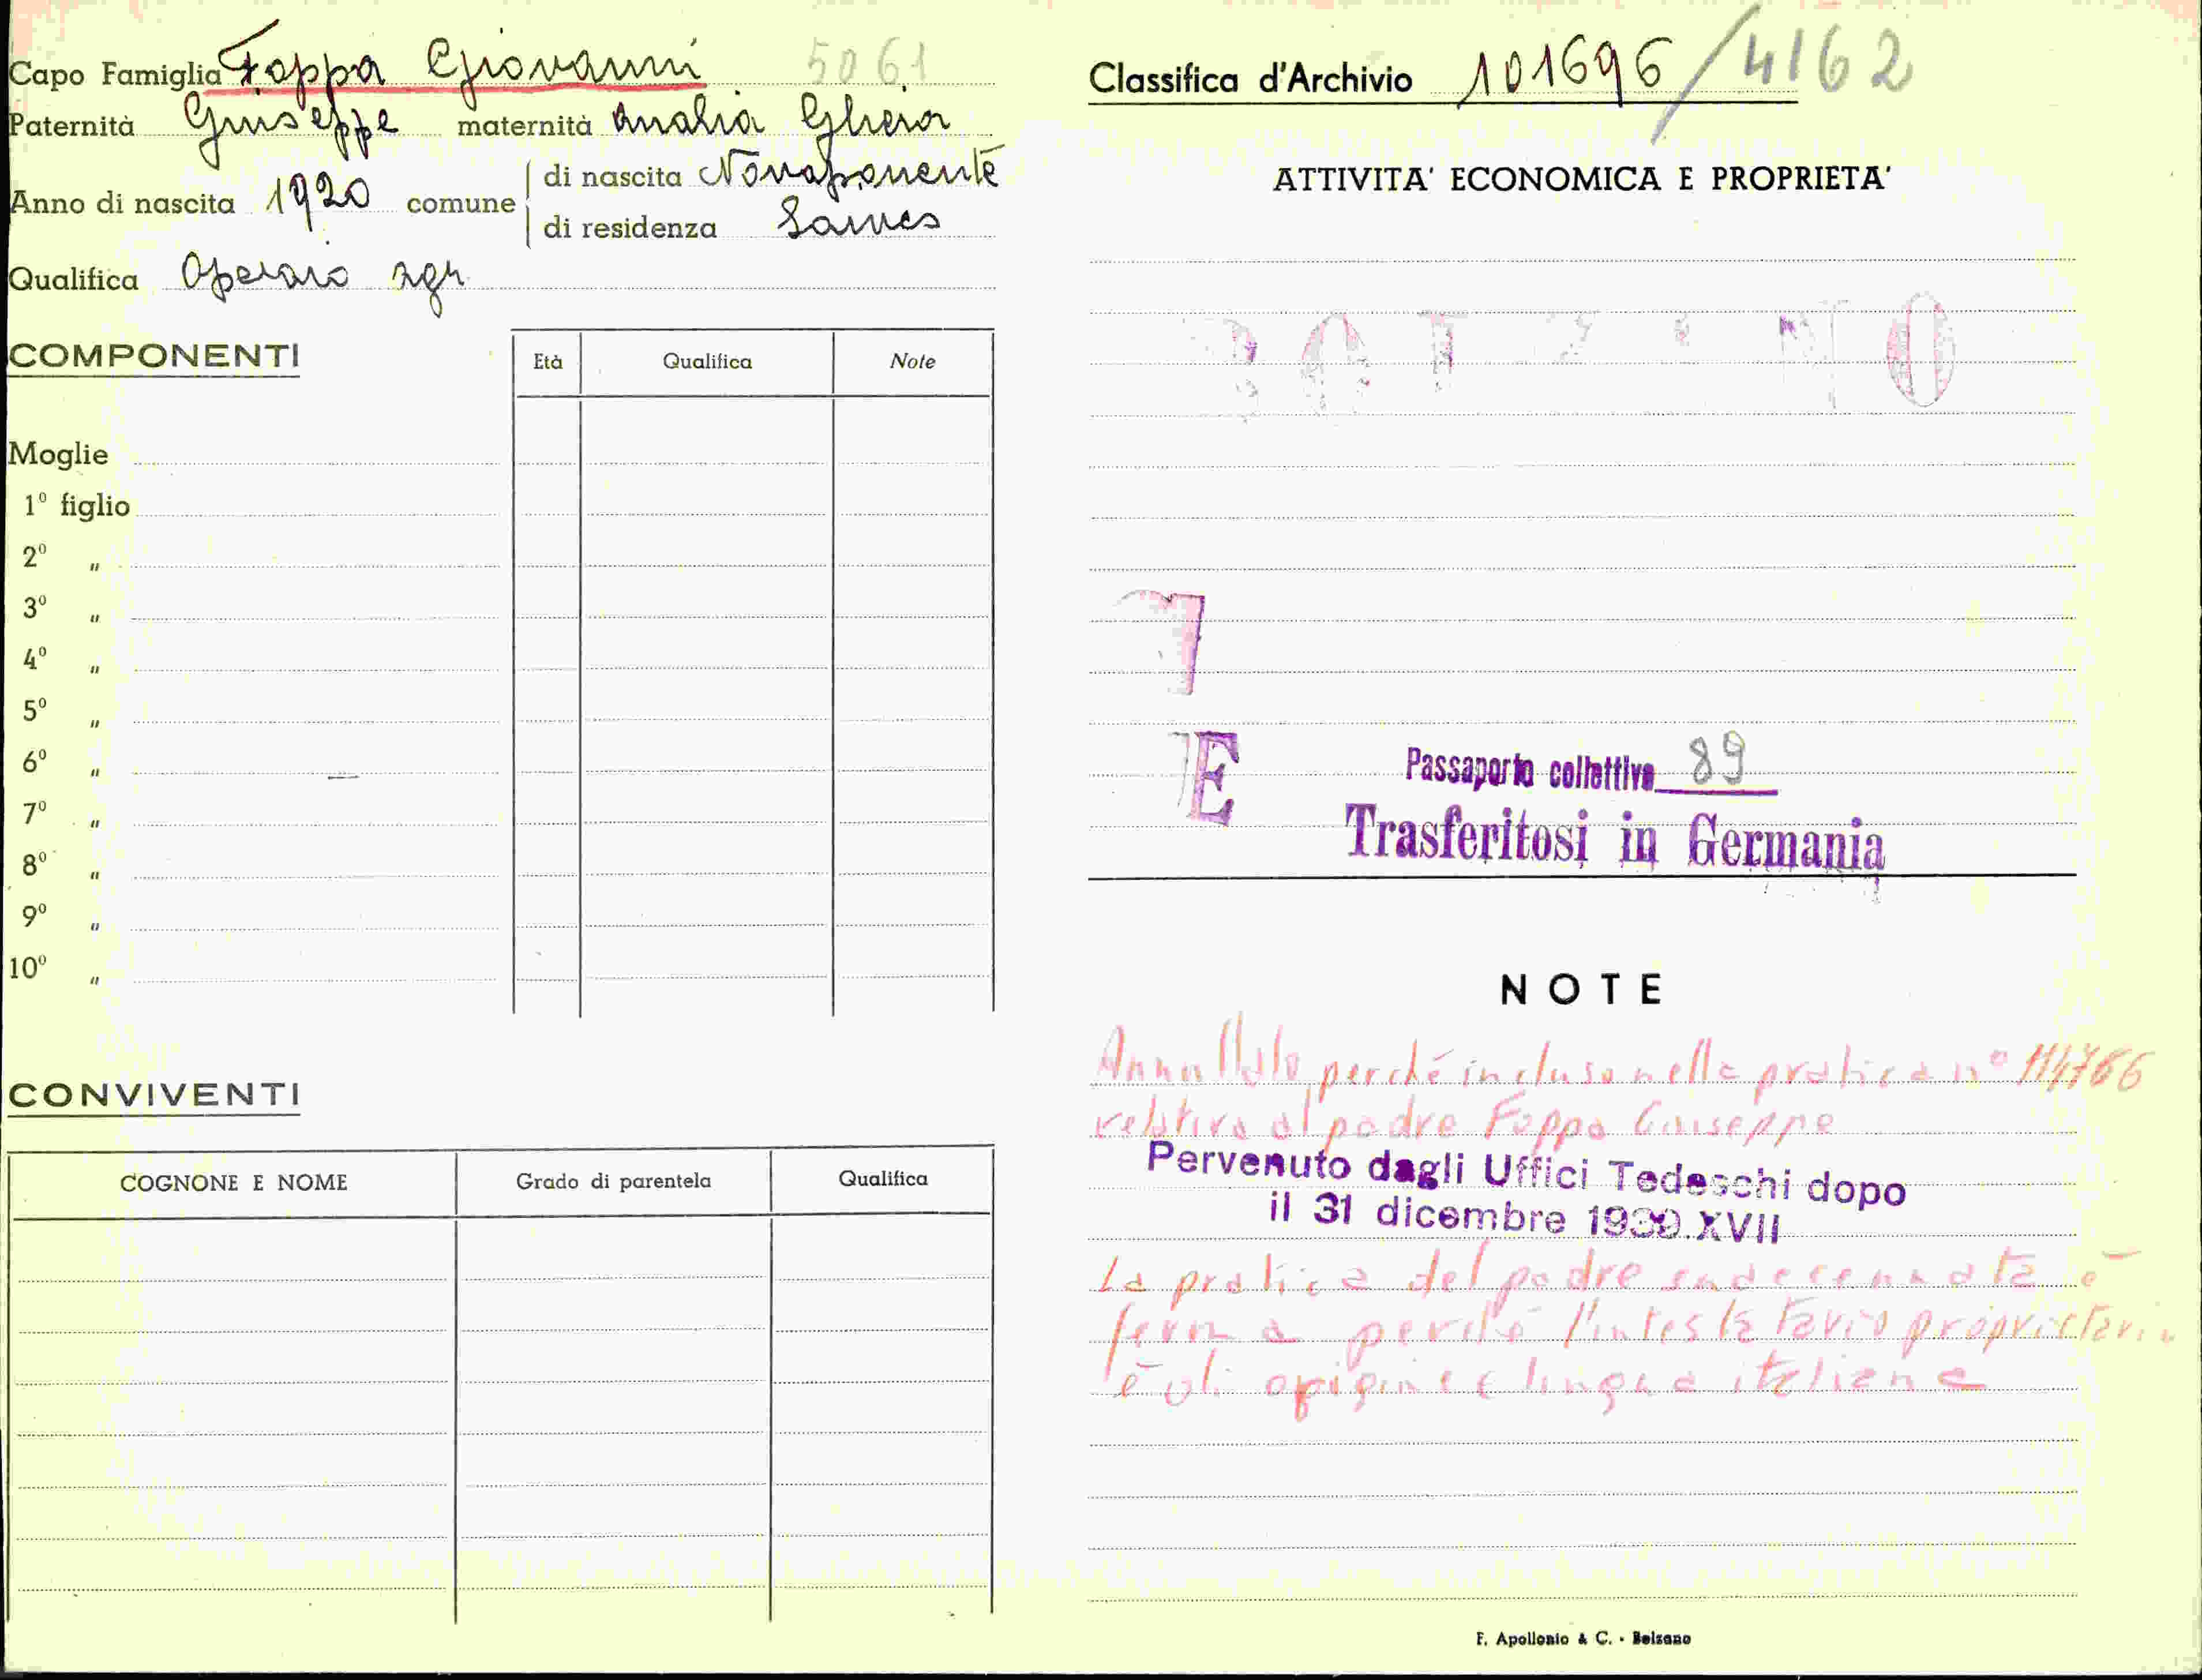 Capo Famiglia Foppa Giovanni 5061
Paternità Giuseppe maternità Analia Gheia
Anno di nascita 1920 comune
di nascita Novaponente
di residenza Laives
Qualifica Operaio agr
COMPONENTI
Età Qualifica Note
Moglie
1º figlio
2º "
3º "
4º "
5º "
6º "
7º "
8º "
9º "
10º "
CONVIVENTI
COGNONE E NOME Grado di parentela Qualifica
Classifica d'Archivio 101696/4162
ATTIVITA' ECONOMICA E PROPRIETA'
E
Passaporto collettivo 89
Trasferitosi in Germania
NOTE
Annullato perché incluso nella pratica nº 114766
relativa al padre Foppa Giuseppe
Pervenuto dagli Uffici Tedeschi dopo
il 31 dicembre 1939.XVII
La pratica del padre è
ferma perché l'intestatario proprietario
è di origine e lingua italiana
F. Apollonio & C. - Bolzano